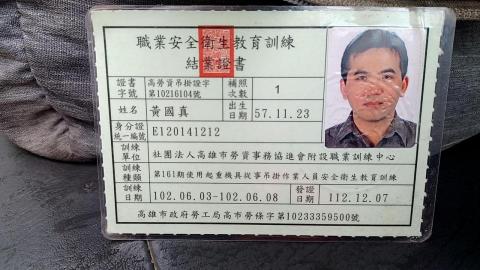 職業安全衛生教育訓練
結業證書
證書字號 高勞資吊掛證字第10216104號 補照次數 1
姓名 黃國真 出生日期 57.11.23
身分證統一編號 E120141212
訓練單位 社團法人高雄市勞資事務協進會附設職業訓練中心
訓練種類 第161期使用起重機具從事吊掛作業人員安全衛生教育訓練
訓練日期 102.06.03-102.06.08 發證日期 112.12.07
高雄市政府勞工局高市勞條字第10233359500號